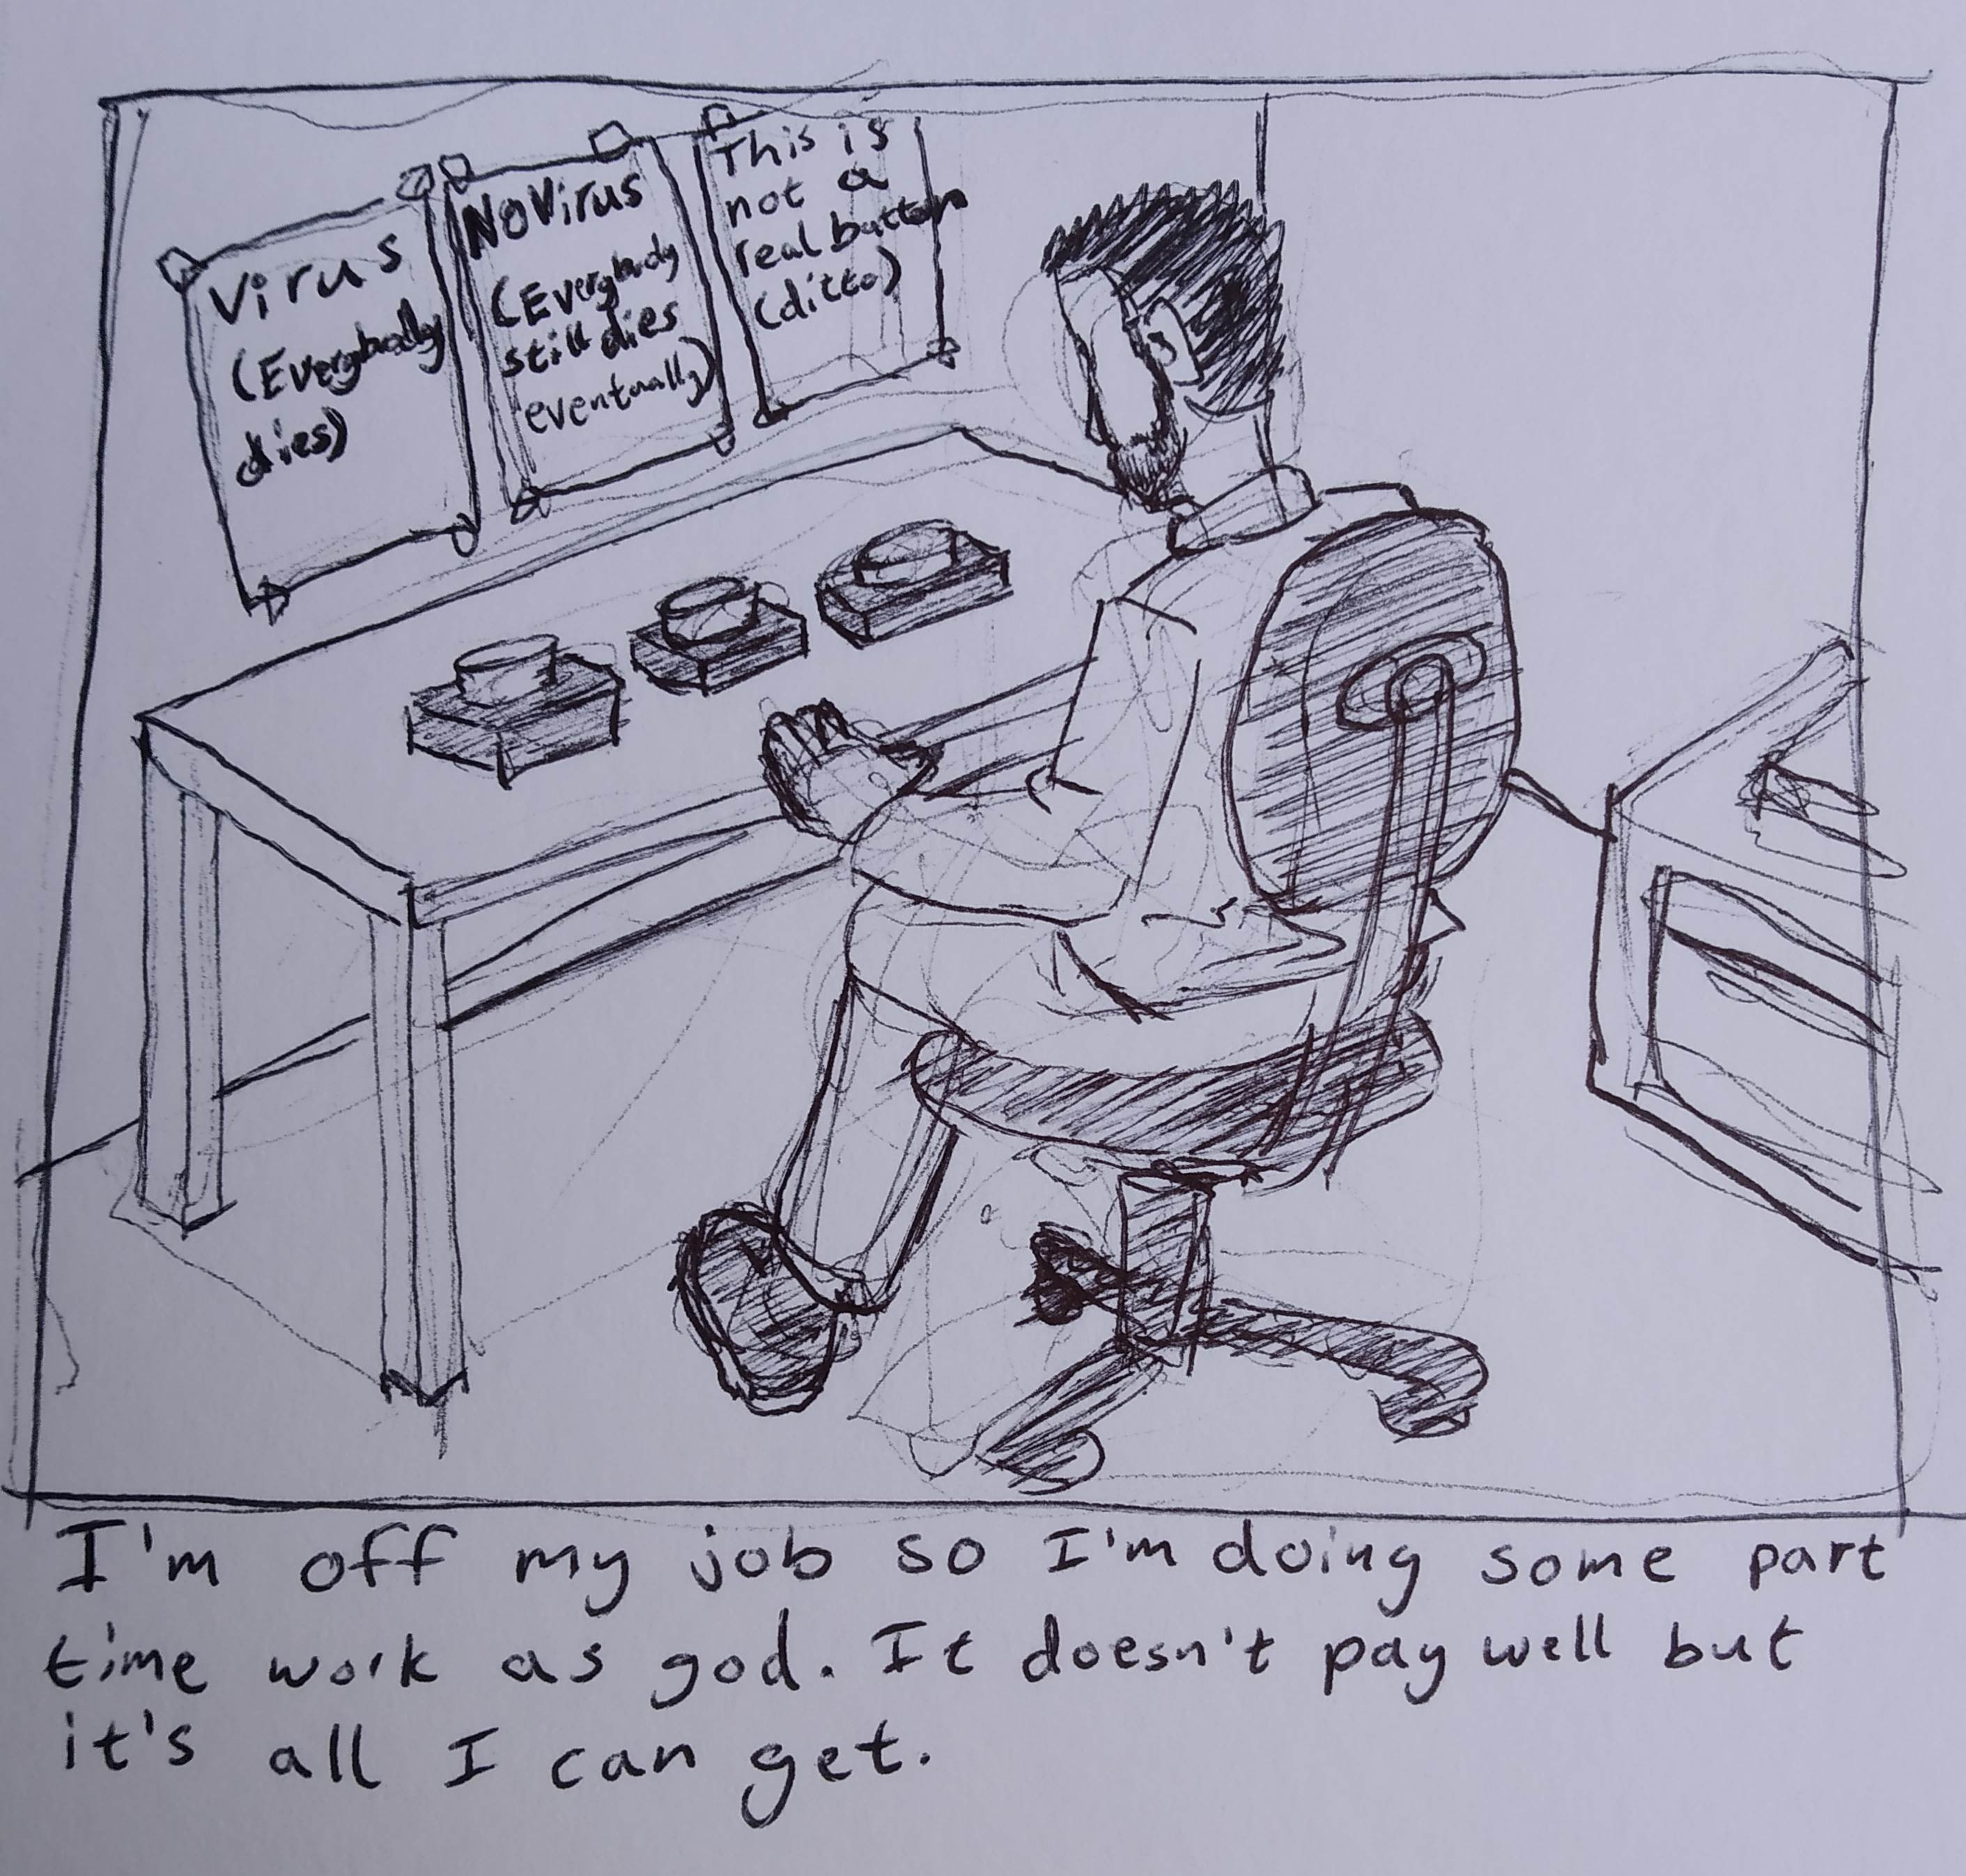 Virus
(Everybody
dies)
NoVirus
(Everybody
still dies
eventually)
This is
not a
real button
(ditto)
I'm off my job so I'm doing some part
time work as god. It doesn't pay well but
it's all I can get.